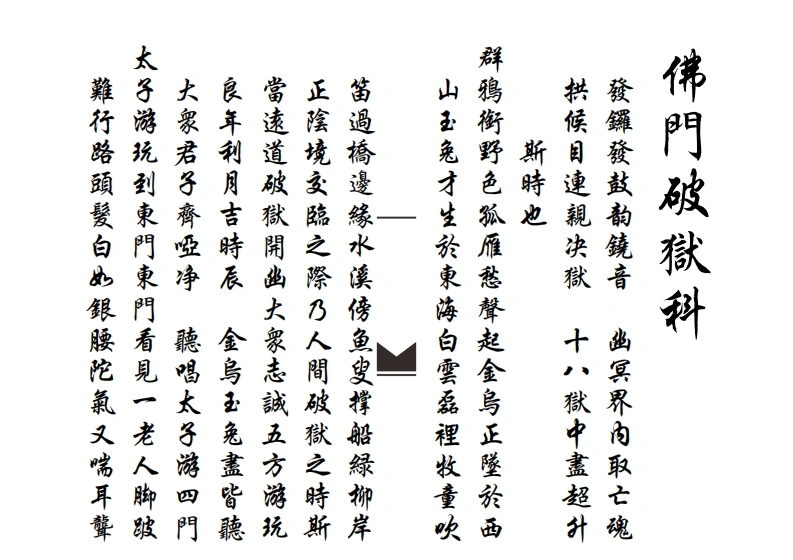 佛門破獄科
發鑼發鼓韵鐃音　幽冥界內取亡魂
拱候目連親決獄　十八獄中盡超升
斯時也
群鴉銜野色孤雁愁聲起金烏正墜於西
山玉兔才生於東海白雲磊裡牧童吹
笛過橋邊緣水溪傍魚叟撐船綠柳岸
正陰境交臨之際乃人間破獄之時斯
當遠道破獄開幽大衆志誠五方游玩
良年利月吉時辰　金烏玉兔盡皆聽
大衆君子齊啞净　聽唱太子游四門
太子游玩到東門東門看見一老人脚跛
難行路頭髮白如銀腰陀氣又喘耳聾